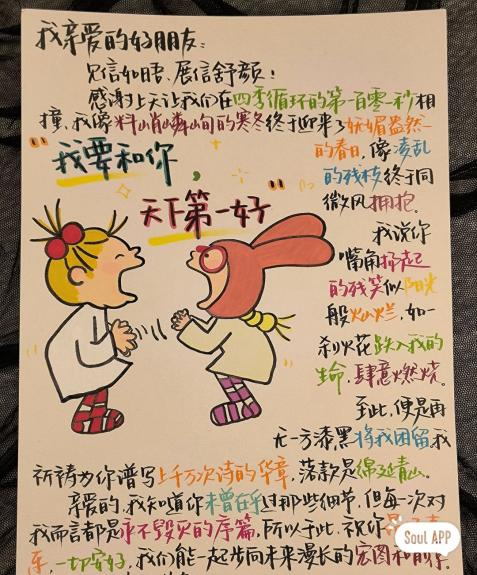 我亲爱的好朋友：
见信如晤，展信舒颜！
感谢上天让我们在四季循环的第一百零一秒相
撞，我像料峭嶙峋的寒冬终于迎来了妩媚盎然
的春日，像凌乱
的残枝终于同
微风拥抱。
"我要和你，
天下第一好"
我说你
嘴角扬起
的残笑似阳光
般灿烂，如一
刹火花跌入我的
生命，肆意燃烧。
至此，便是再
无一方漆黑将我困留，我
祈祷为你谱写上千万次诗的华章，落款是绵延青山。
亲爱的，我知道你未曾在乎过那些细节，但每一次对
我而言都是永不毁灭的序篇，所以于此，祝你
一切安好，我们能一起步向未来漫长的宏图和前程。
Soul APP